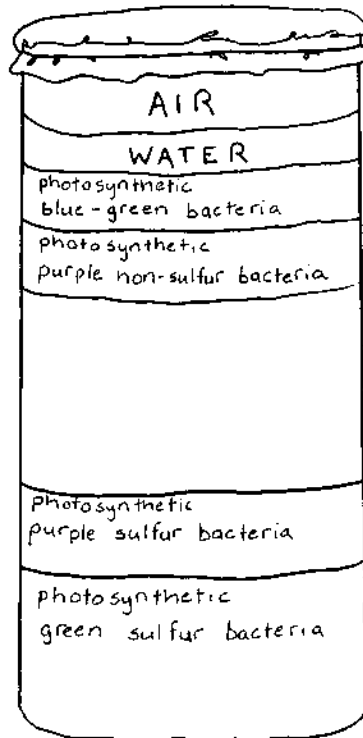 AIR
WATER
photosynthetic
blue-green bacteria
photosynthetic
purple non-sulfur bacteria
photosynthetic
purple sulfur bacteria
photosynthetic
green sulfur bacteria